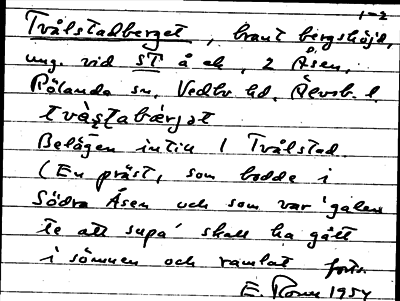 1-2
Tvålstadberget, brant bergshöjd,
ung. vid ST å ek, 2 Åsen,
Rölanda sn, Vedbo hd, Älvsb. l.
tvàstabærjət
Belägen intill 1 Tvålstad.
(En präst, som bodde i
Södra Åsen och som var 'galen
te att supa' skall ha gått
i sömnen och ramlat forts.
E. 1954